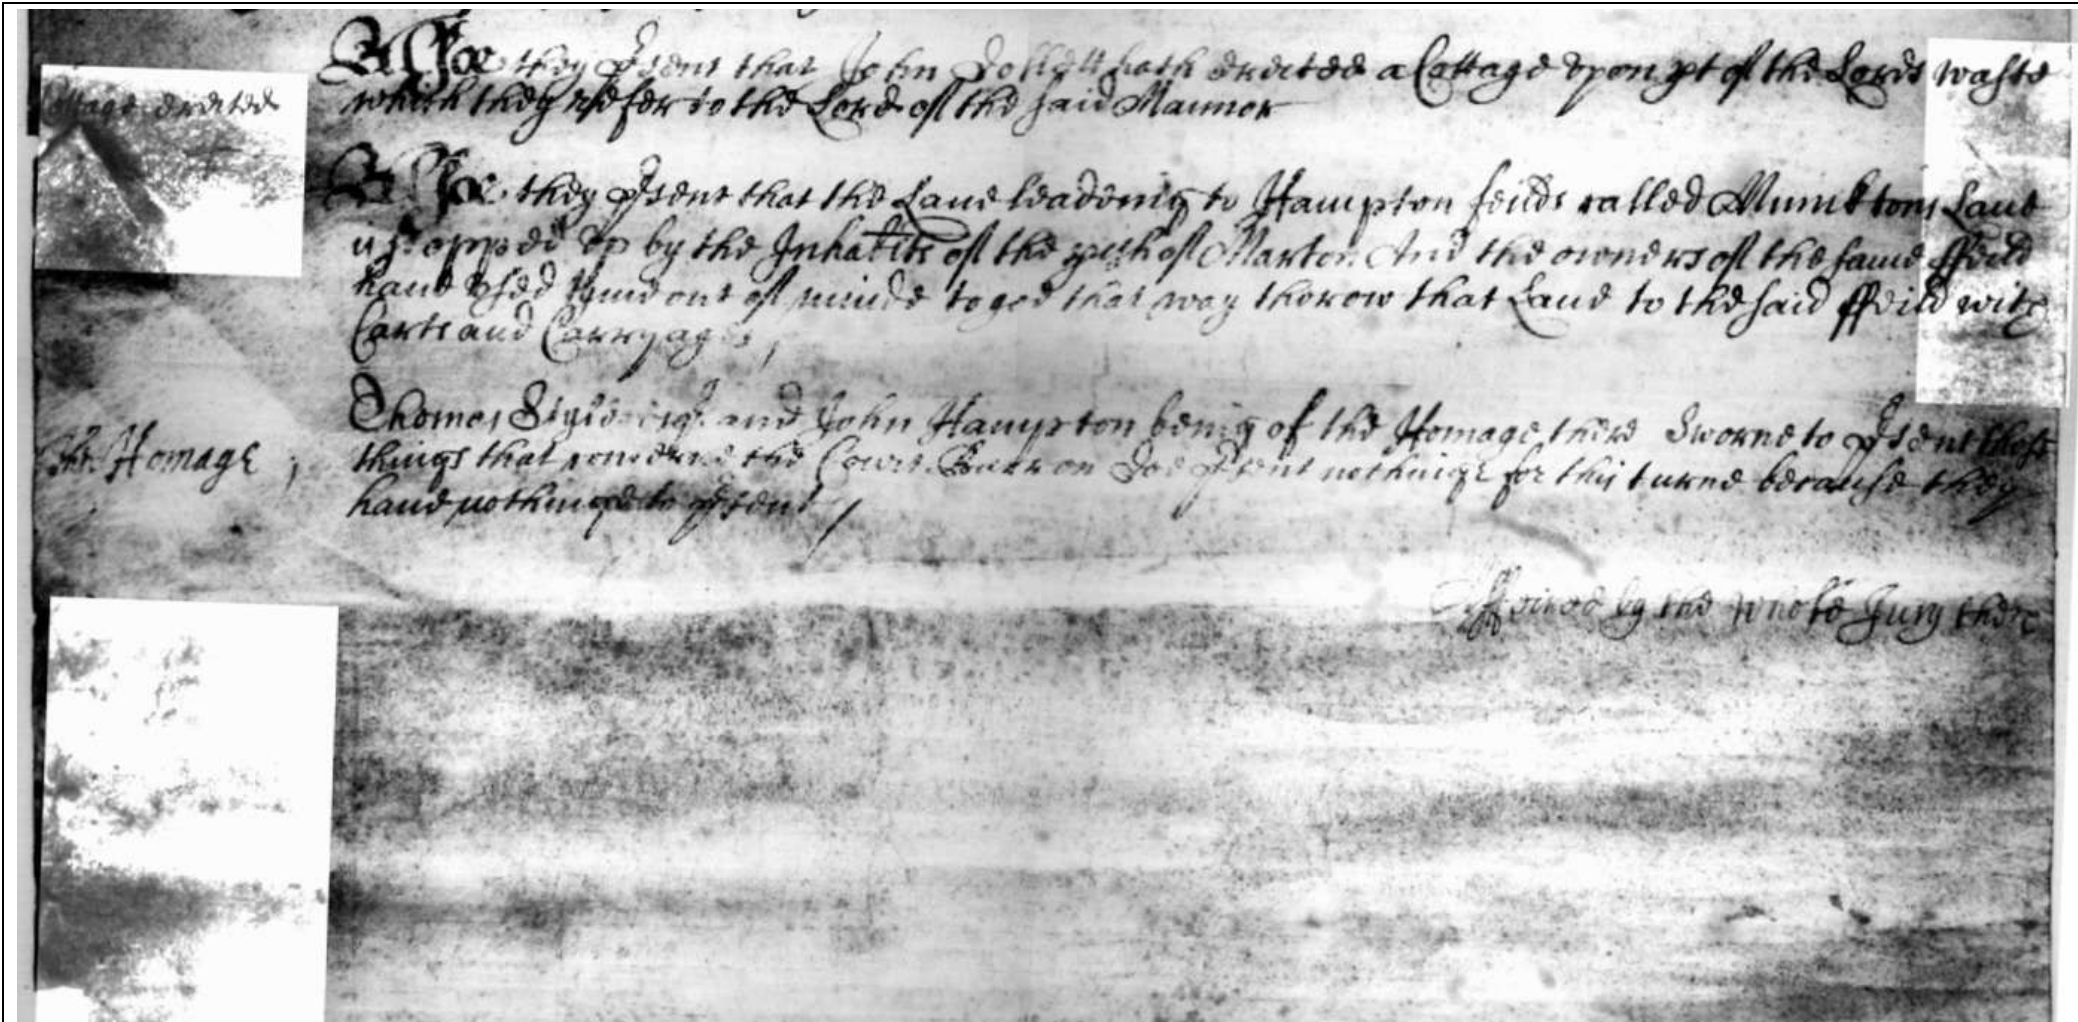 Cottage erected
Alsoe they p'sent that John Dollett hath erected a Cottage vpon pt of the Lords waste
which they refer to the Lord of the said Mannor
Alsoe they p'sent that the Lane leadeing to Hampton feilds called Lane
is stopped vp by the Inhabits of the p'ish of Marton And the owners of the same ffeild
haue vsed tyme out of minde to goe that way thorow that Lane to the said ffeild with
Carts and Carryages,
The Homage ;
Thomas and John Hampton being of the Homage there Sworne to p'sent those
things that concerne the Court Barron doe p'sent nothinge for this turne because they
haue nothinge to p'sent /
Affeired by the whole Jury there